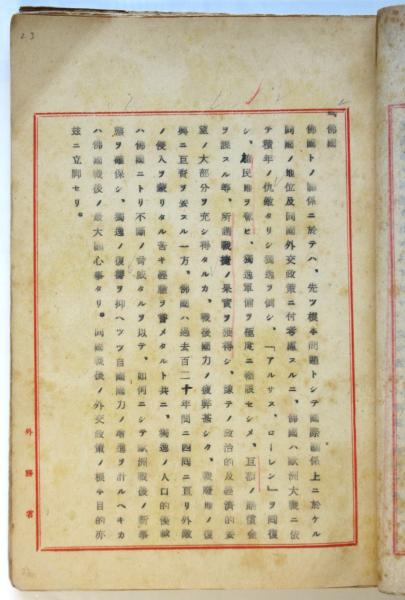 23
『佛國
佛國トノ關係ニ於テハ、先ツ根本問題トシテ國際關係上ニ於ケル
同國ノ地位及同國外交政策ニ付考慮スルニ、佛國ハ歐洲大戰ニ依
テ積年ノ仇敵タリシ獨逸ヲ倒シ、「アルサス、ローレン」ヲ回復
シ、植民地ヲ奪ヒ、獨逸軍備ヲ極度ニ縮減セシメ、巨額ノ賠償金
ヲ課スル等、所謂戰捷ノ果實ヲ獲得シ、豫テノ政治的及經濟的希
望ノ大部分ヲ充シ得タルカ、戰後國力ノ疲弊甚シク、戰廢地ノ復
興ニ巨資ヲ要スル一方、佛國ハ過去百二十年間ニ四囘ニ亘リ外敵
ノ侵入ヲ蒙リタル苦キ經驗ヲ嘗メタルト共ニ、獨逸ノ人口的優越
ハ佛國ニトリ不斷ノ脅威タルヲ以テ、如何ニシテ歐洲戰後ノ新事
態ヲ確保シ、獨逸ノ復讐ヲ抑ヘツツ自國國力ノ增進ヲ計ルヘキカ
ハ佛國戰後ノ最大關心事タリ。同國戰後ノ外交政策ノ根本目的亦
玆ニ立脚セリ。
外務省